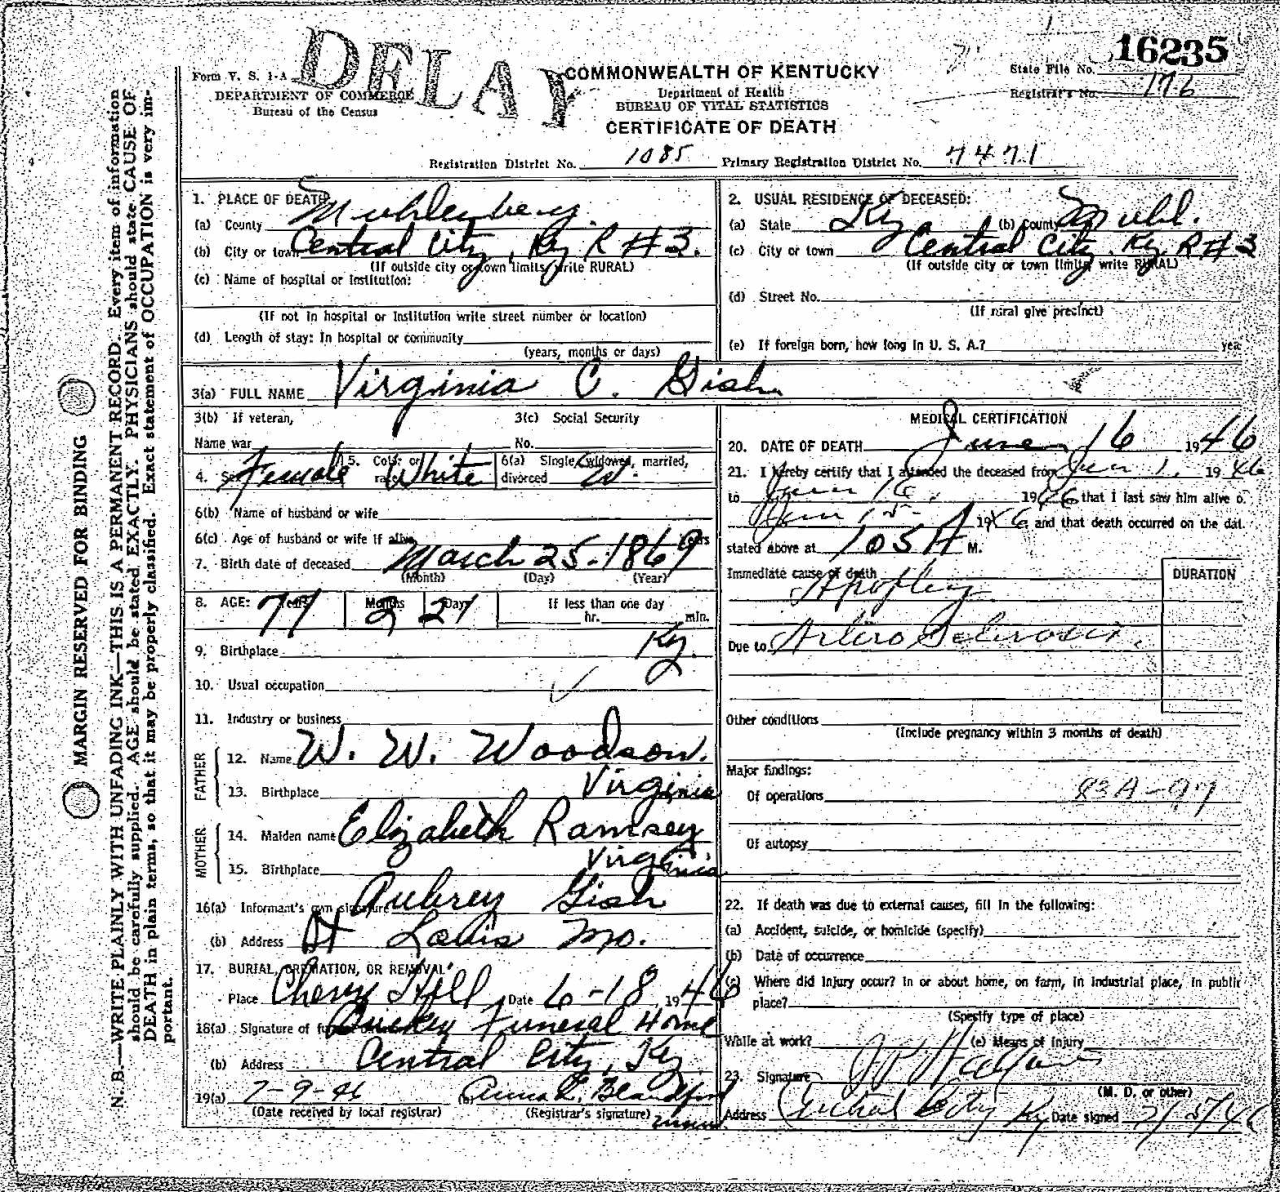 DELAY
16235
Form V. S. 1-A
DEPARTMENT OF COMMERCE
Bureau of the Census
COMMONWEALTH OF KENTUCKY
Department of Health
BUREAU OF VITAL STATISTICS
CERTIFICATE OF DEATH
State File No.
Registrar's No. 176
Registration District No. 1085 Primary Registration District No. 7471
MARGIN RESERVED FOR BINDING
N. B.—WRITE PLAINLY WITH UNFADING INK—THIS IS A PERMANENT RECORD. Every item of information
should be carefully supplied. AGE should be stated EXACTLY. PHYSICIANS should state CAUSE OF
DEATH in plain terms, so that it may be properly classified. Exact statement of OCCUPATION is very im-
portant.
1. PLACE OF DEATH
(a) County Muhlenberg.
(b) City or town Central City, Ky R #3.
(If outside city or town limits, write RURAL)
(c) Name of hospital or institution:
(If not in hospital or institution write street number or location)
(d) Length of stay: In hospital or community
(years, months or days)
2. USUAL RESIDENCE OF DECEASED:
(a) State Ky (b) County Muhl.
(c) City or town Central City. Ky R #3
(If outside city or town limits, write RURAL)
(d) Street No.
(If rural give precinct)
(e) If foreign born, how long in U. S. A.?
3(a) FULL NAME Virginia C. Gish
3(b) If veteran,
Name war
3(c) Social Security
No.
4. Sex Female 5. Color or race White 6(a) Single, widowed, married, divorced W.
6(b) Name of husband or wife
6(c) Age of husband or wife if alive years
7. Birth date of deceased March 25-1869
(Month) (Day) (Year)
8. AGE: Years 77 Months 2 Days 21 If less than one day
hr. min.
9. Birthplace Ky.
10. Usual occupation
11. Industry or business
FATHER
12. Name W. W. Woodson.
13. Birthplace Virginia
MOTHER
14. Maiden name Elizabeth Ramsey
15. Birthplace Virginia
16(a) Informant's own signature Aubrey Gish
(b) Address St Louis Mo.
17. BURIAL, CREMATION, OR REMOVAL
Place Cherry Hill Date 6-18, 1946
18(a) Signature of Funeral Home
(b) Address Central City, Ky
19(a) 7-9-46 Anna L.
(Date received by local registrar) (Registrar's signature)
MEDICAL CERTIFICATION
20. DATE OF DEATH June 16 1946
21. I hereby certify that I attended the deceased from June 1. 1946
to June 16. 1946 that I last saw him alive o.
June 15- 1946 and that death occurred on the dat.
stated above at 105 A M.
Immediate cause of death Apoplexy
DURATION
Due to Arterio Sclerosis.
Other conditions
(Include pregnancy within 3 months of death)
Major findings:
Of operations 83A-97
Of autopsy
22. If death was due to external causes, fill in the following:
(a) Accident, suicide, or homicide (specify)
(b) Date of occurrence
(c) Where did injury occur? In or about home, on farm, in industrial place, in public
place?
(Specify type of place)
While at work? (e) Means of injury
23. Signature
(M. D. or other)
Address Central City Ky Date signed 7/5/46